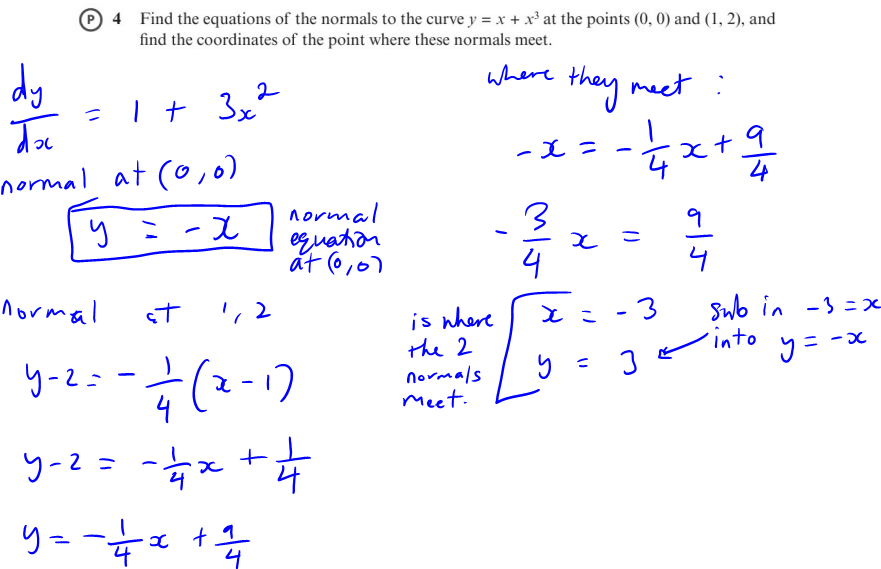 P 4 Find the equations of the normals to the curve y = x + x³ at the points (0, 0) and (1, 2), and
find the coordinates of the point where these normals meet.
dy/dx = 1 + 3x²
normal at (0,0)
y = -x
normal
equation
at (0,0)
normal at 1,2
y-2 = -1/4(x-1)
y-2 = -1/4x + 1/4
y = -1/4x + 9/4
where they meet :
-x = -1/4x + 9/4
-3/4 x = 9/4
is where
the 2
normals
meet.
x = -3
y = 3
sub in -3=x
into y=-x